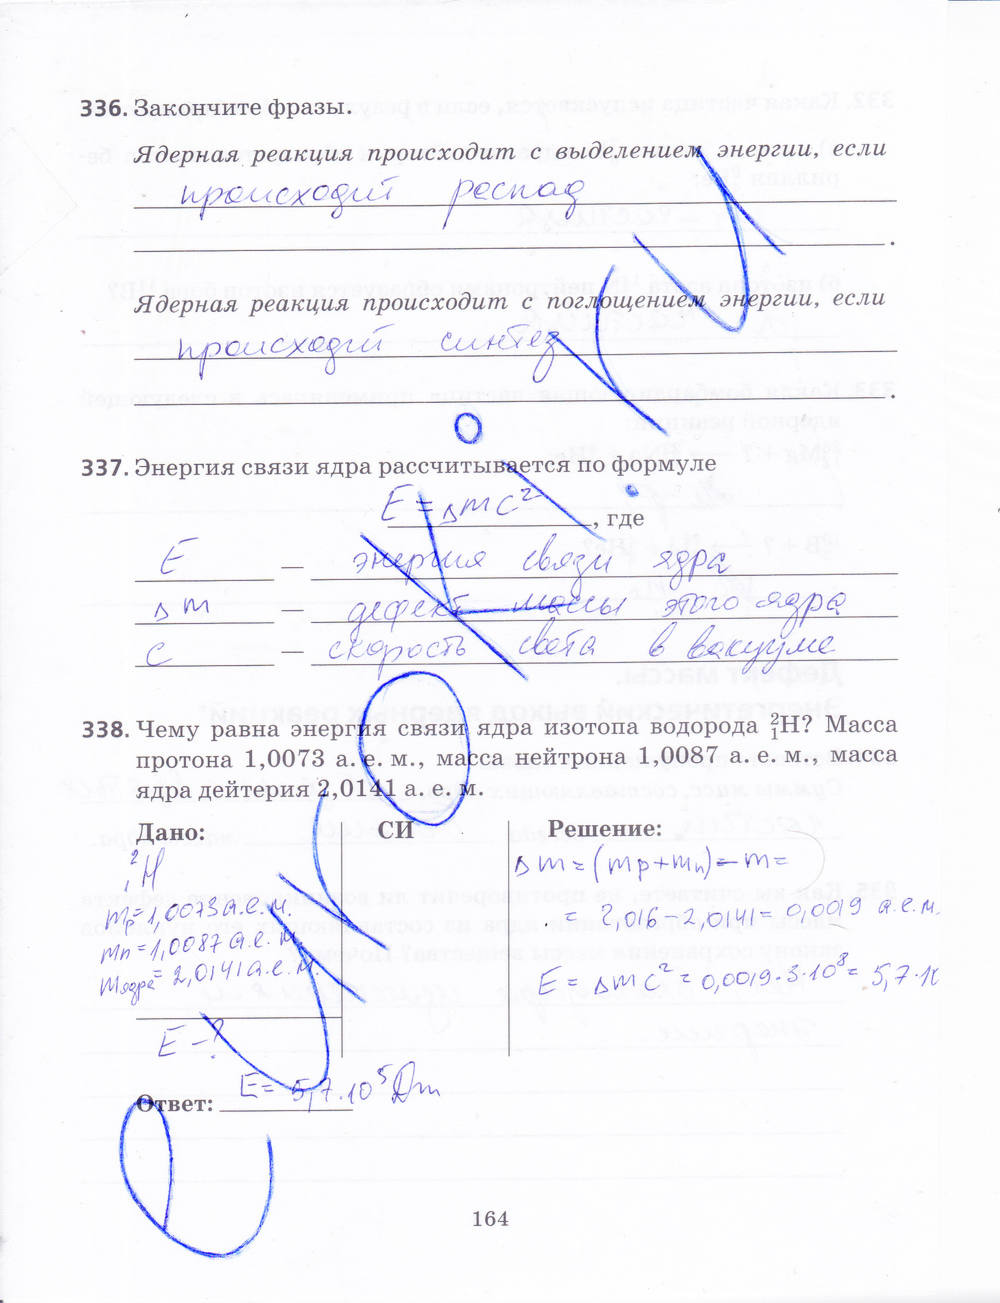 336. Закончите фразы.
Ядерная реакция происходит с выделением энергии, если
происходит распад
Ядерная реакция происходит с поглощением энергии, если
происходит синтез
337. Энергия связи ядра рассчитывается по формуле
E = Δmc², где
E — энергия связи ядра
Δm — дефект массы этого ядра
c — скорость света в вакууме
338. Чему равна энергия связи ядра изотопа водорода ²₁H? Масса
протона 1,0073 а. е. м., масса нейтрона 1,0087 а. е. м., масса
ядра дейтерия 2,0141 а. е. м.
Дано: СИ Решение:
²₁H
mp=1,0073 а.е.м.
mn=1,0087 а.е.м.
mядра=2,0141 а.е.м.
E - ?
Δm = (mp+mn) - m =
= 2,016 - 2,0141 = 0,0019 а.е.м.
E = Δmc² = 0,0019·3·10⁸ = 5,7·10
Ответ: E = 5,7·10⁵ Дж
164